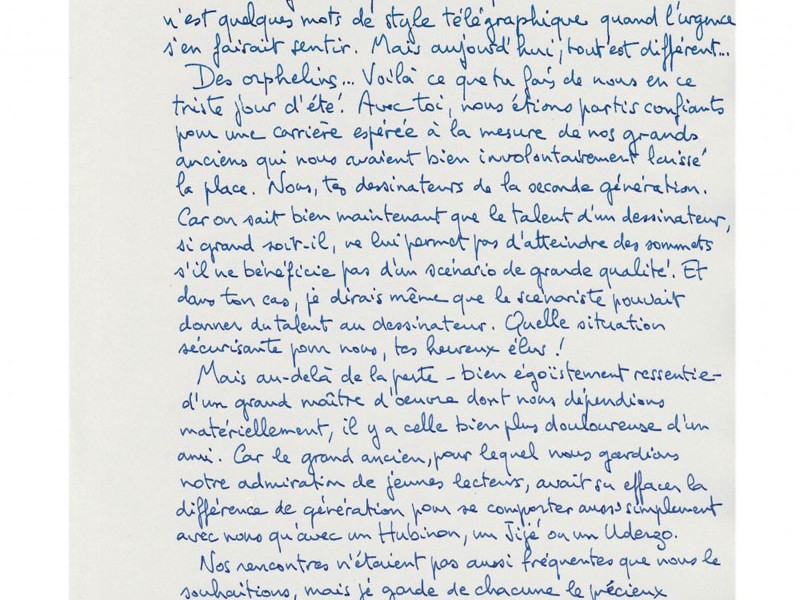 n'est quelques mots de style télégraphique quand l'urgence
s'en faisait sentir. Mais aujourd'hui, tout est différent...
Des orphelins... Voilà ce que tu fais de nous en ce
triste jour d'été! Avec toi, nous étions partis confiants
pour une carrière espérée à la mesure de nos grands
anciens qui nous avaient bien involontairement laissé
la place. Nous, tes dessinateurs de la seconde génération.
Car on sait bien maintenant que le talent d'un dessinateur,
si grand soit-il, ne lui permet pas d'atteindre des sommets
s'il ne bénéficie pas d'un scénario de grande qualité. Et
dans ton cas, je dirais même que le scénariste pouvait
donner du talent au dessinateur. Quelle situation
sécurisante pour nous, tes heureux élus!
Mais au-delà de la perte - bien égoïstement ressentie -
d'un grand maître d'oeuvre dont nous dépendions
matériellement, il y a celle bien plus douloureuse d'un
ami. Car le grand ancien, pour lequel nous gardions
notre admiration de jeunes lecteurs, avait su effacer la
différence de génération pour se comporter aussi simplement
avec nous qu'avec un Hubinon, un Jijé ou un Uderzo.
Nos rencontres n'étaient pas aussi fréquentes que nous le
souhaitions, mais je garde de chacune le précieux